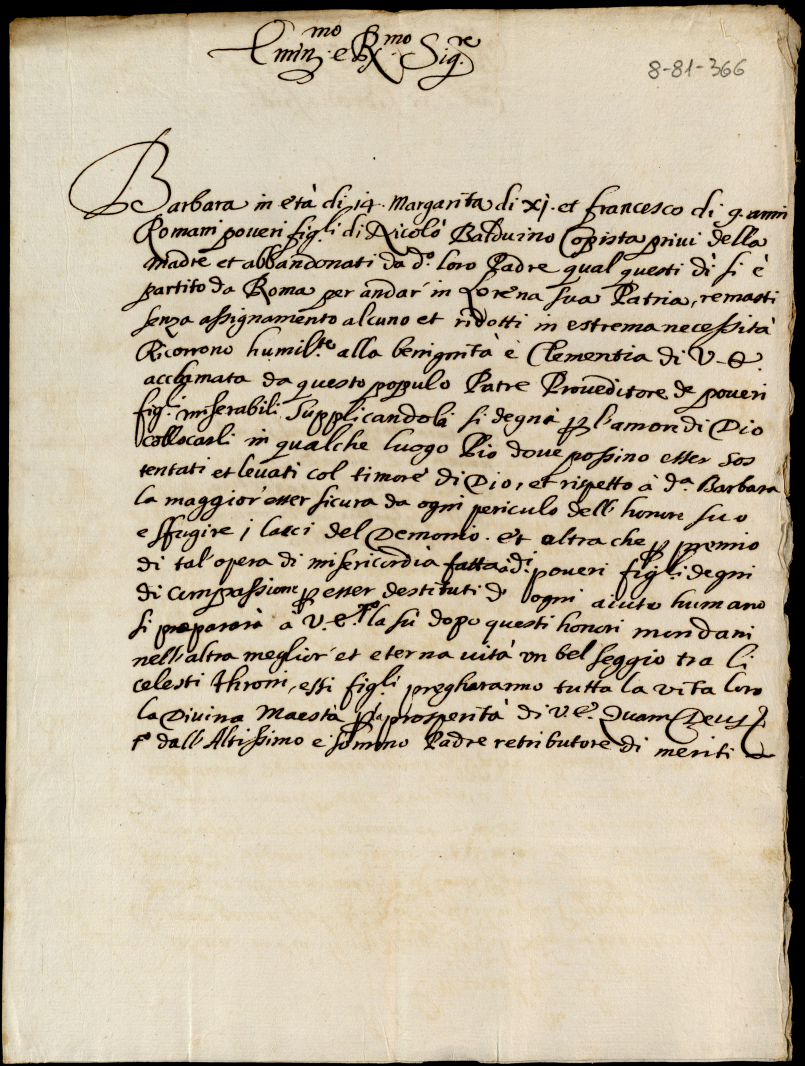 Emin.mo e R.mo Sig.re
8-81-366
Barbara in età di 14. Margarita di xj. et francesco di 9. anni
Romani poueri figl.i di Nicolò Balduino Copista priui della
madre et abbandonati da d.o loro Padre qual questi dì si è
partito da Roma per andar' in Lorena sua Patria, remasti
senza assignamento alcuno et ridotti in estrema necessità
Ricorrono humil.te alla benignità è Clementia di V. E.
acclamata da questo populo Patre Proueditore de poueri
figl.i miserabili Supplicandola si degna p l'amor di Dio
collocarli in qualche luogo Pio doue possino esser sos
tentati et leuati col timore di Dio, et rispetto à d.a Barbara
la maggior' esser sicura da ogni periculo dell' honore suo
e sfugire j lacci del Demonio. et altra che p premio
di tal' opera di misericordia fatta à d.i poueri figl.i degni
di compassione p esser destituti d' ogni aiuto humano
si prepararà à V. E. la sù dopo questi honori mondani
nell' altra meglior' et eterna uità vn bel seggio tra li
celesti throni, essi figl.i pregharanno tutta la vita loro
la Diuina Maestà p la prosperità di V. E. Quam Deus
dall' Altissimo e sommo Padre retributore di meriti